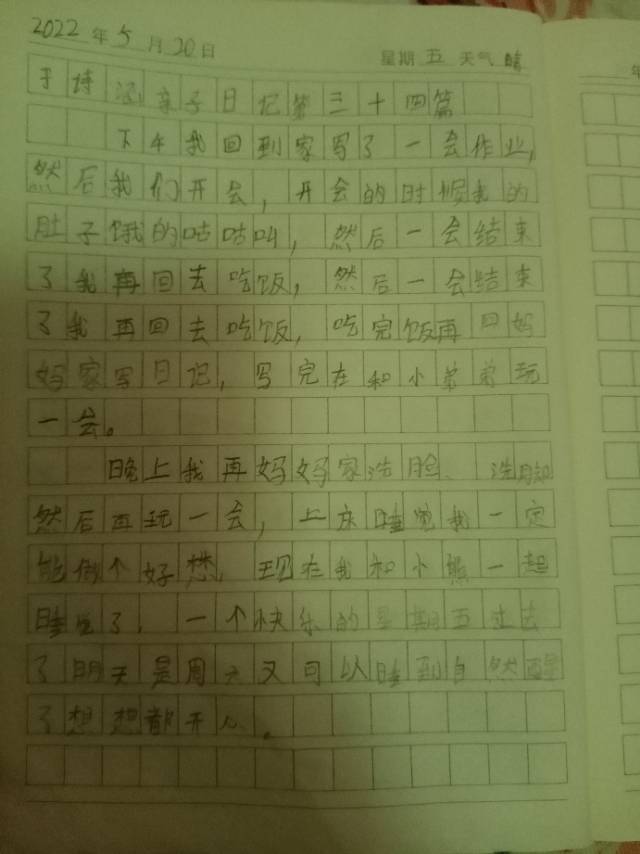 2022年5月20日 星期五 天气晴
于诗涵亲子日记第三十四篇
下午我回到家写了一会作业,
然后我们开会,开会的时候我的
肚子饿的咕咕叫,然后一会结束
了我再回去吃饭,然后一会结束
了我再回去吃饭,吃完饭再回妈
妈家写日记,写完在和小弟弟玩
一会。
晚上我再妈妈家洗脸、洗脚
然后再玩一会,上床睡觉我一定
能做个好梦,现在我和小熊一起
睡觉了,一个快乐的星期五过去
了明天是周六又可以睡到自然醒
了想想都开心。
年